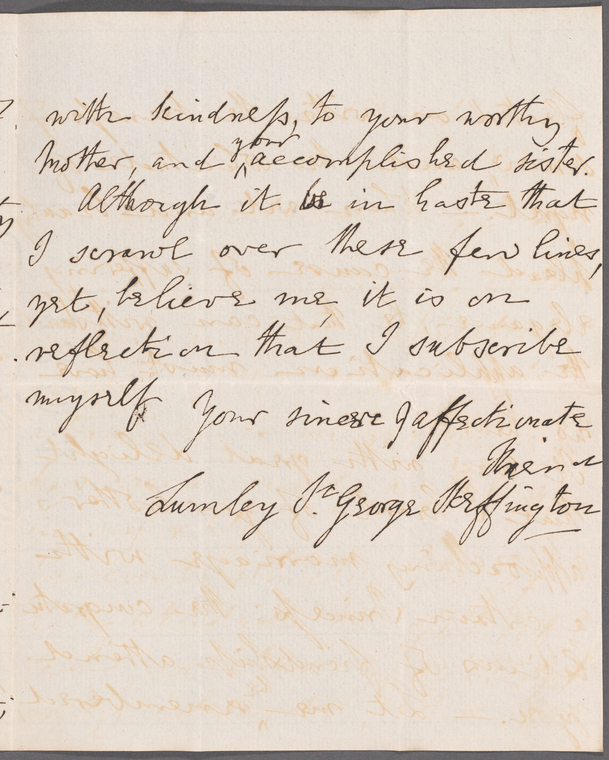 with kindness, to your worthy
Mother, and your accomplished sister.
Although it be in haste that
I scrawl over these few lines,
yet, believe me, it is on
reflection that I subscribe
myself
Your sincere & affectionate
Friend
Lumley St. George Skeffington